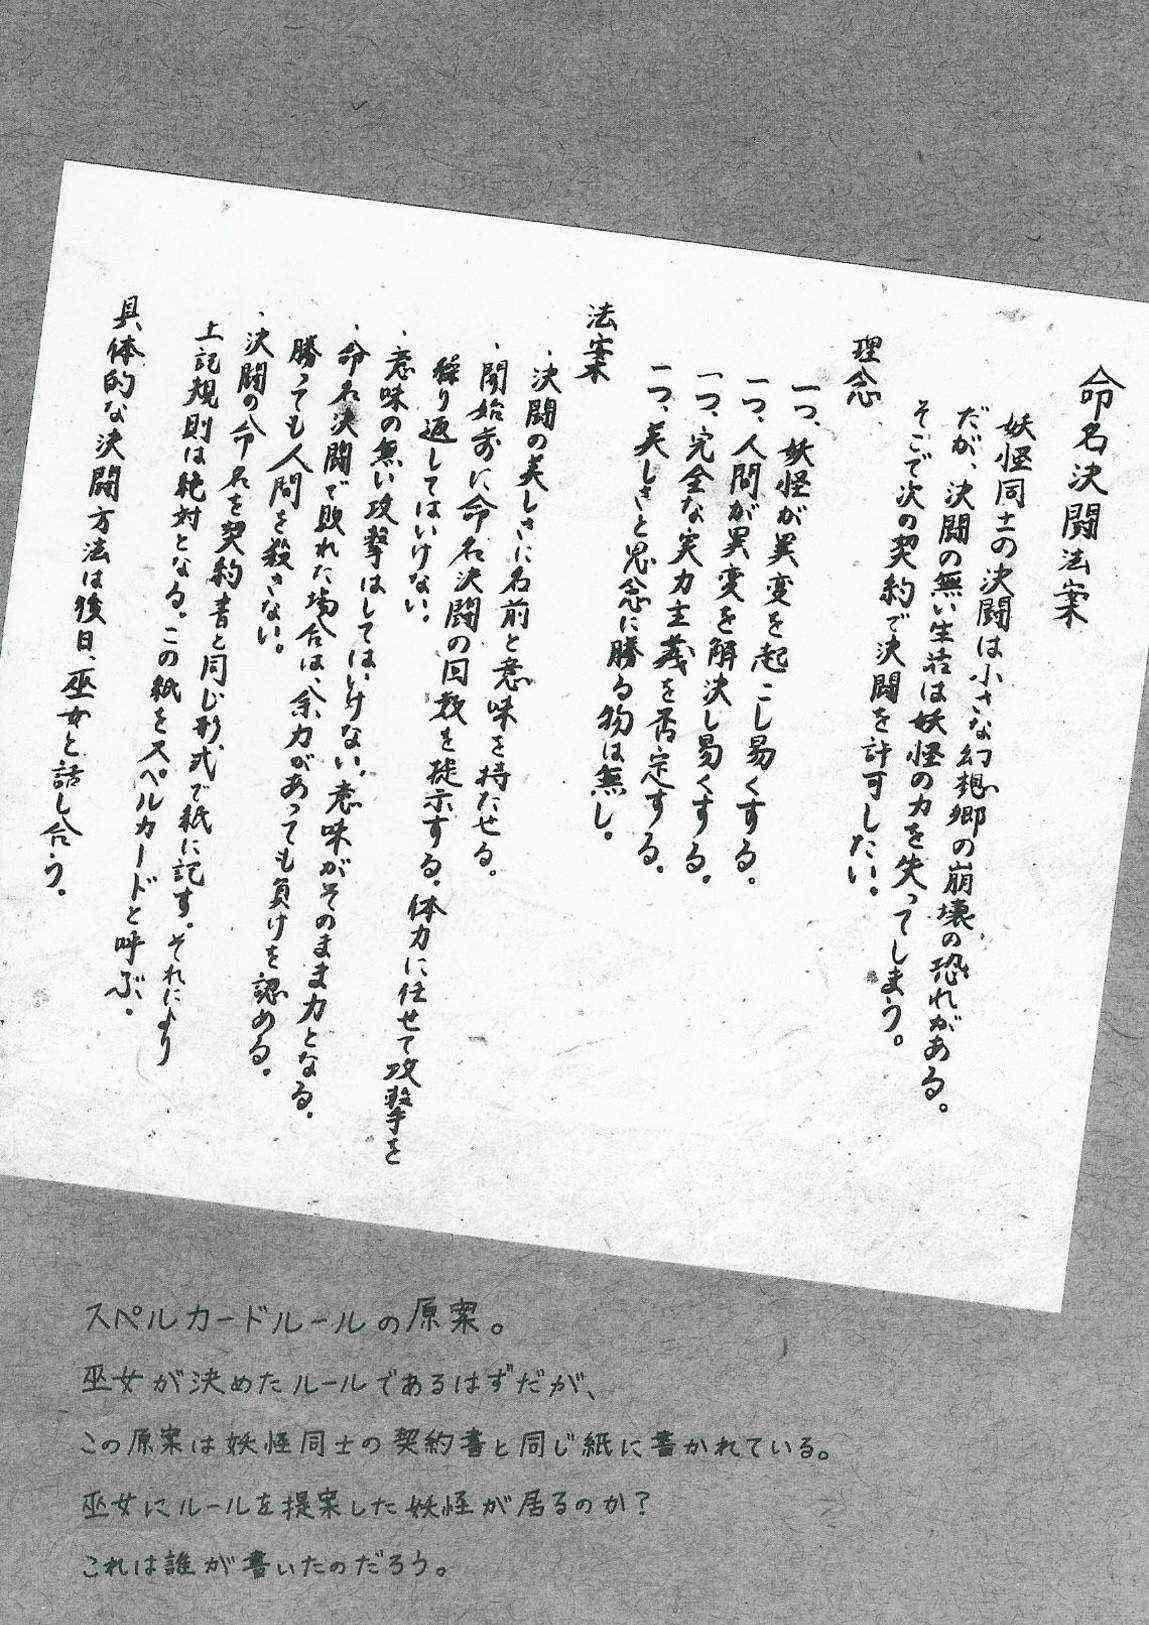 命名決闘法案
妖怪同士の決闘は小さな幻想郷の崩壊の恐れがある。
だが、決闘の無い生活は妖怪の力を失ってしまう。
そこで次の契約で決闘を許可したい。
理念
一つ、妖怪が異変を起こし易くする。
一つ、人間が異変を解決し易くする。
一つ、完全な実力主義を否定する。
一つ、美しさと思念に勝る物は無し。
法案
・決闘の美しさに名前と意味を持たせる。
・開始前に命名決闘の回数を提示する。体力に任せて攻撃を
繰り返してはいけない。
・意味の無い攻撃はしてはいけない、意味がそのまま力となる。
・命名決闘で敗れた場合は、余力があっても負けを認める。
勝っても人間を殺さない。
・決闘の命名を契約書と同じ形式で紙に記す。それにより
上記規則は絶対となる。この紙をスペルカードと呼ぶ。
具体的な決闘方法は後日、巫女と話し合う。
スペルカードルールの原案。
巫女が決めたルールであるはずだが、
この原案は妖怪同士の契約書と同じ紙に書かれている。
巫女にルールを提案した妖怪が居るのか?
これは誰が書いたのだろう。